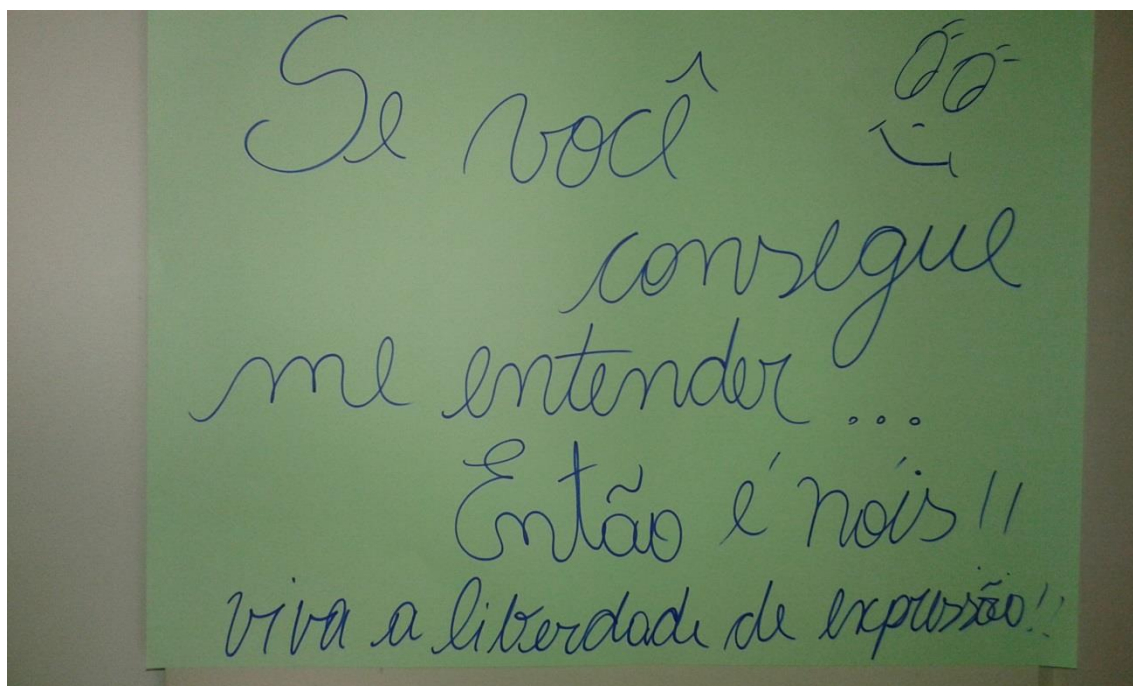 Se você
consegue
me entender...
Então é nóis!!
viva a liberdade de expressão!!